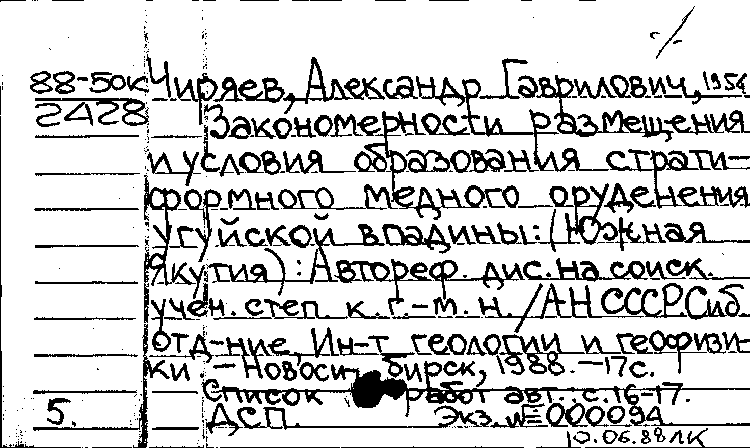 88-50к Чиряев, Александр Гаврилович, 1954
2428 Закономерности размещения
и условия образования страти-
формного медного оруденения
Угуйской впадины: (Южная
Якутия): Автореф. дис. на соиск.
учен. степ. к. г.-м. н. / АН СССР. Сиб
отд-ние, Ин-т геологии и геофизи-
ки. - Новоси- бирск, 1988. - 17с.
Список работ авт.: с. 16-17.
5. ДСП. Экз. № 000094
10.06.88 ЛК